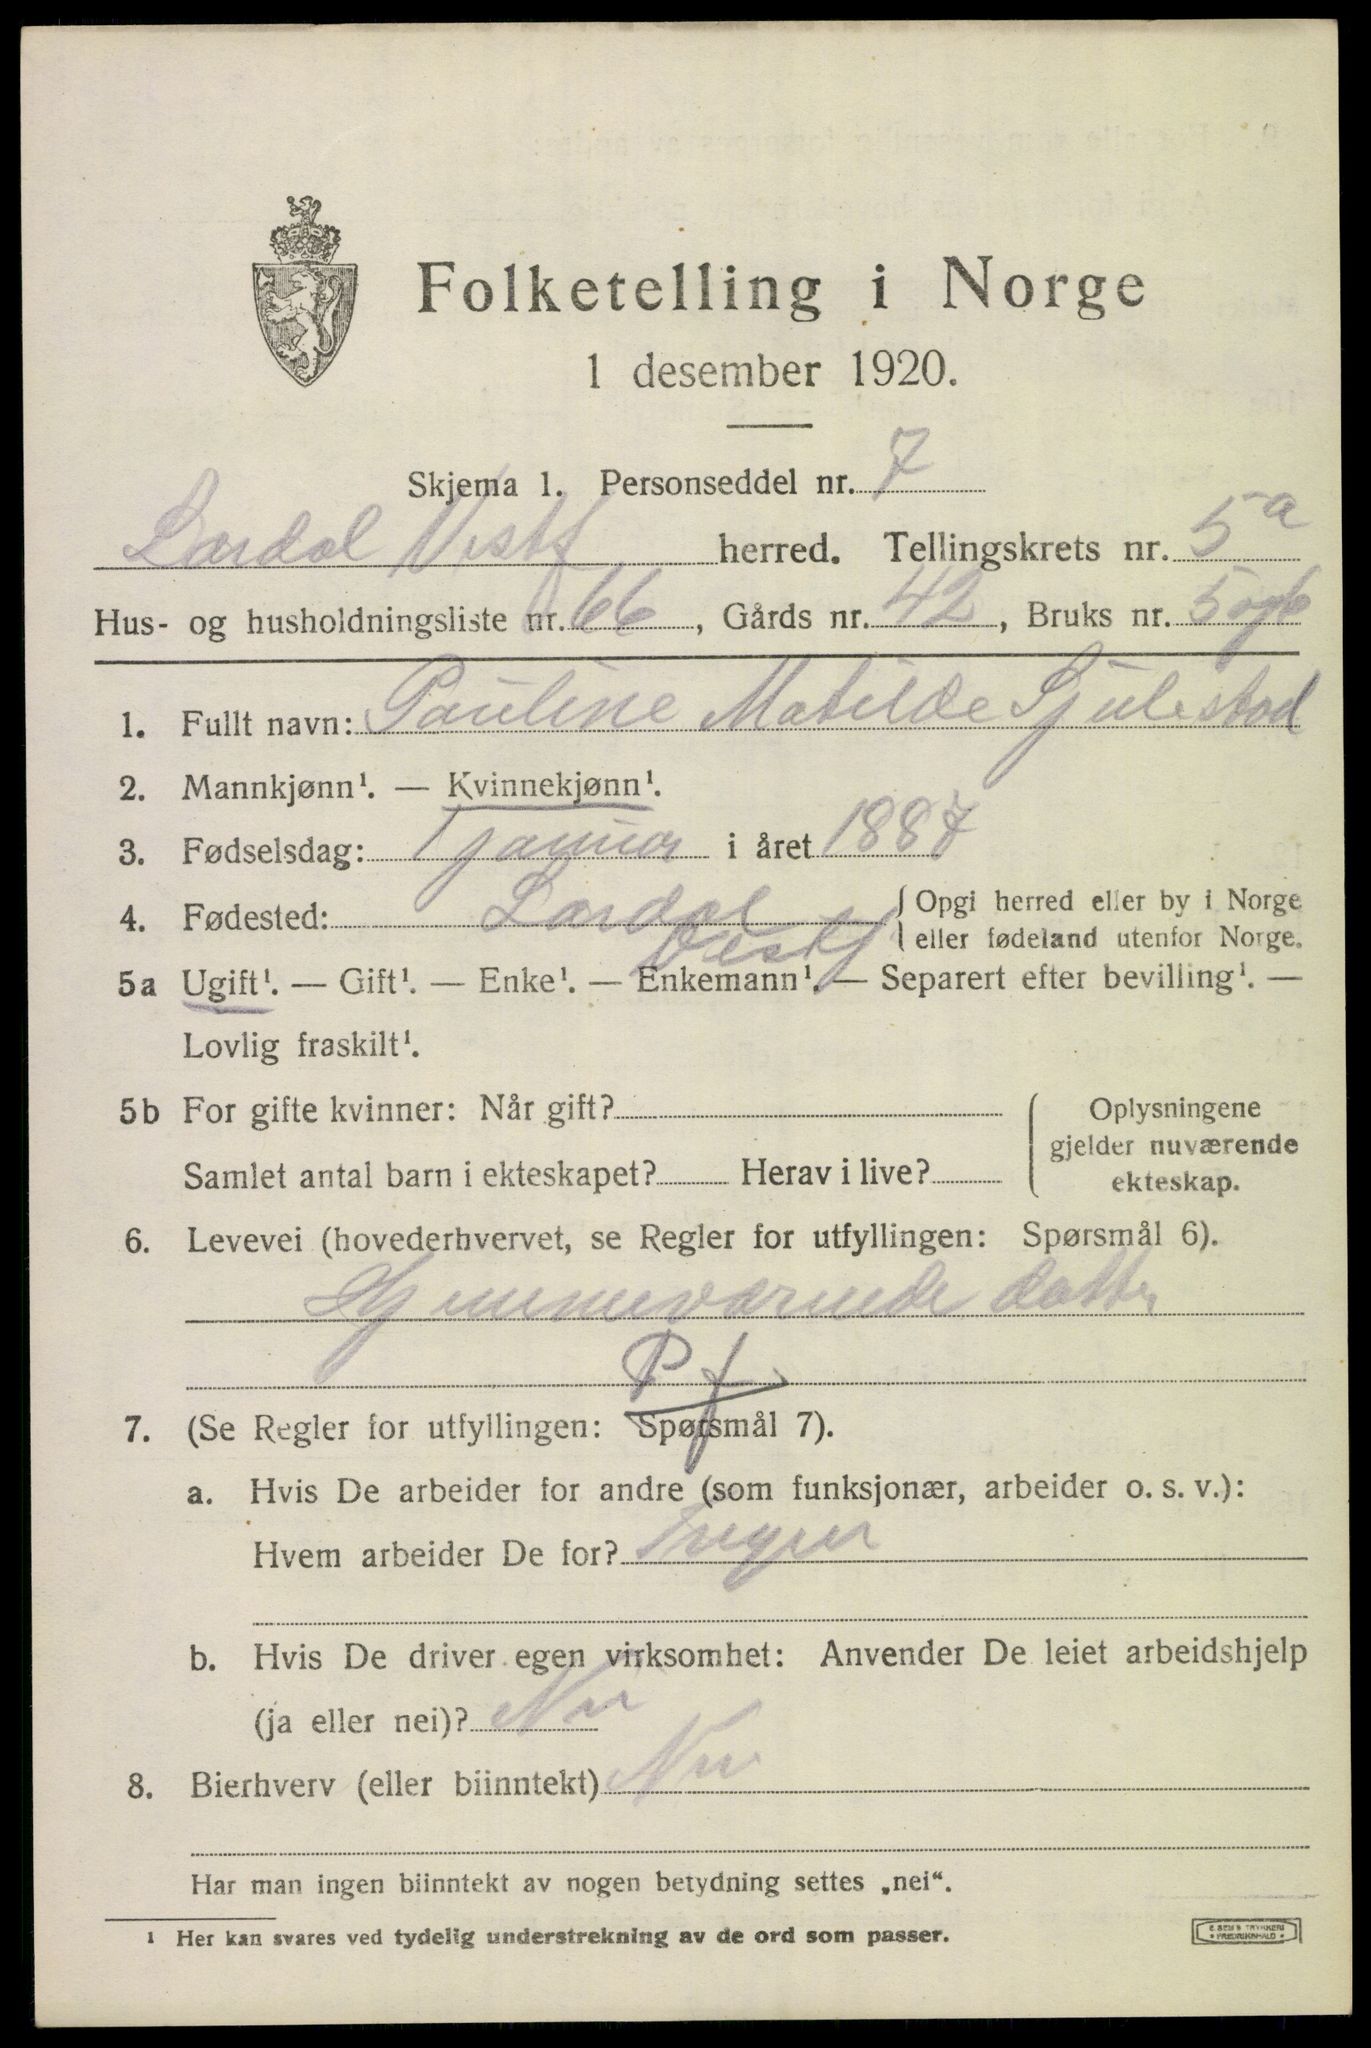 Folketelling i Norge
1 desember 1920.
Skjema 1. Personseddel nr. 7
Lardal Vestf herred. Tellingskrets nr. 5a
Hus- og husholdningsliste nr. 66, Gårds nr. 42, Bruks nr. 5 og 6
1. Fullt navn: Pauline Matilde Sjulestad
2. Mannkjønn¹. — Kvinnekjønn¹.
3. Fødselsdag: 1 januar i året 1887
4. Fødested: Lardal Vestf { Opgi herred eller by i Norge
eller fødeland utenfor Norge.
5a Ugift¹. — Gift¹. — Enke¹. — Enkemann¹. — Separert efter bevilling¹. —
Lovlig fraskilt¹.
5b For gifte kvinner: Når gift? { Oplysningene
gjelder nuværende
Samlet antal barn i ekteskapet? Herav i live?
ekteskap.
6. Levevei (hovederhvervet, se Regler for utfyllingen: Spørsmål 6).
Hjemmeværende datter
Pf
7. (Se Regler for utfyllingen: Spørsmål 7).
a. Hvis De arbeider for andre (som funksjonær, arbeider o. s. v.):
Hvem arbeider De for? Ingen
b. Hvis De driver egen virksomhet: Anvender De leiet arbeidshjelp
(ja eller nei)? Nei
8. Bierhverv (eller biinntekt) Nei
Har man ingen biinntekt av nogen betydning settes „nei“.
¹ Her kan svares ved tydelig understrekning av de ord som passer.
E. SEM'S TRYKKERI
* FREDRIKSHALD *